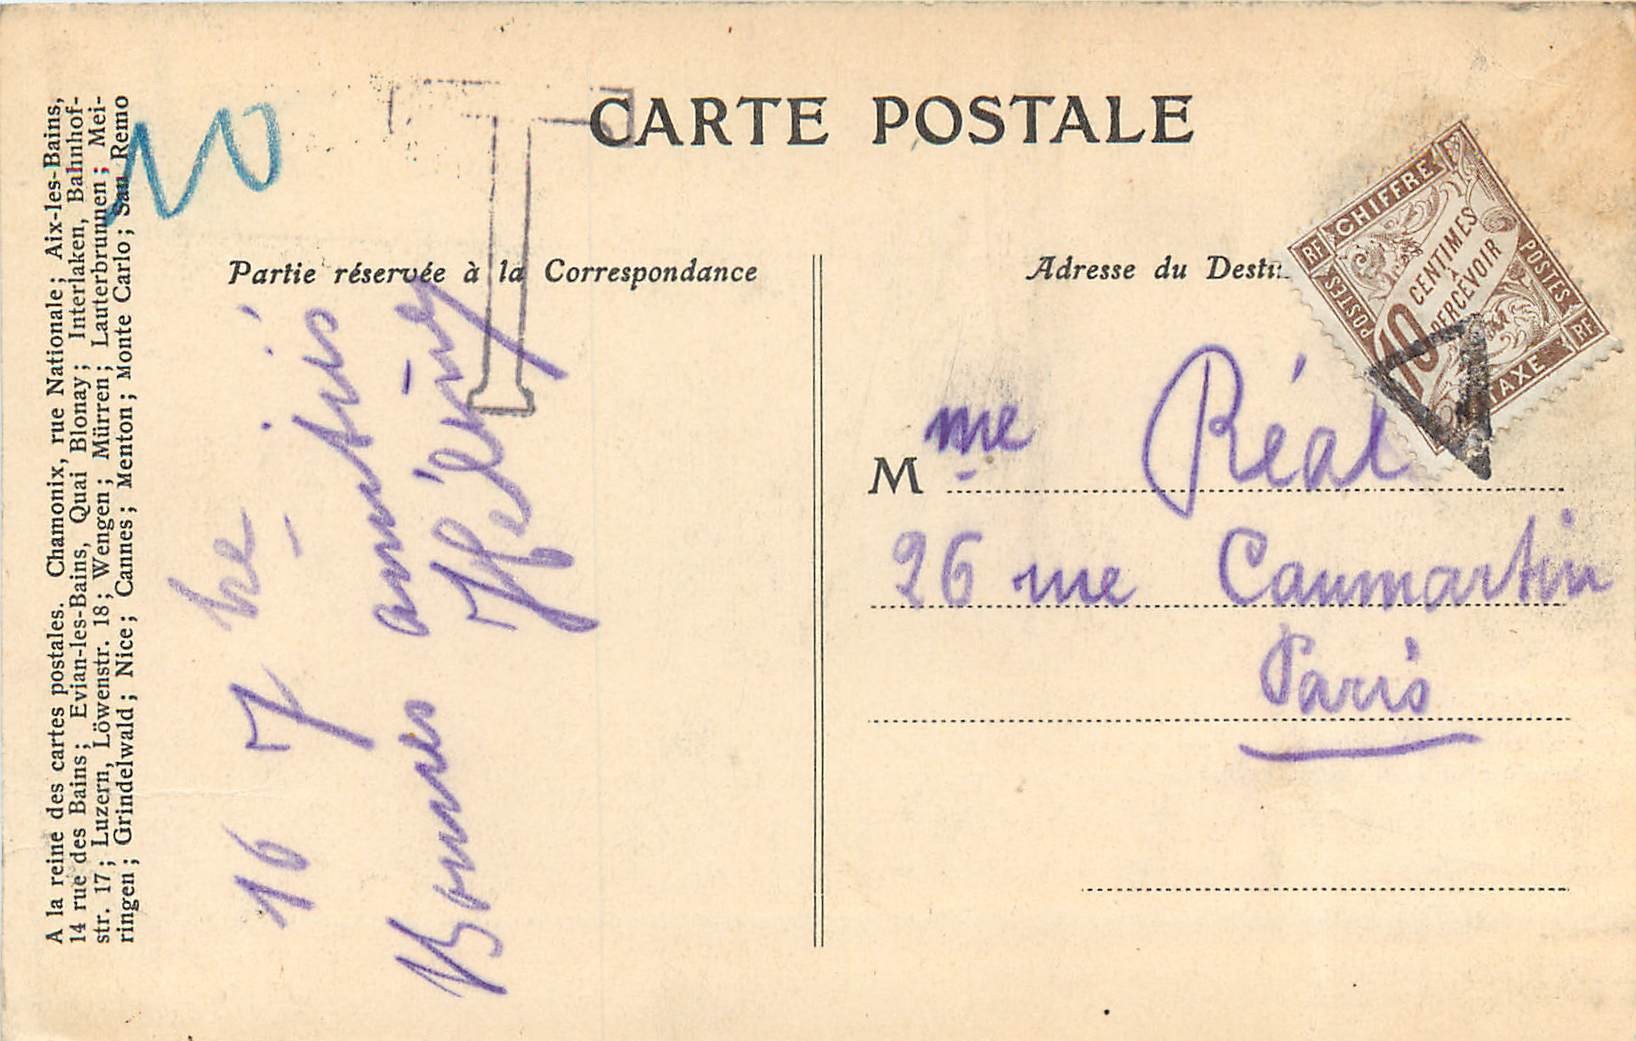 A la reine des cartes postales. Chamonix, rue Nationale; Aix-les-Bains,
14 rue des Bains; Evian-les-Bains, Quai Blonay; Interlaken, Bahnhof-
str. 17; Luzern, Löwenstr. 18; Wengen; Mürren; Lauterbrunnen; Mei-
ringen; Grindelwald; Nice; Cannes; Menton; Monte Carlo; San Remo
T
CARTE POSTALE
Partie réservée à la Correspondance
16 7
Bonnes amitiés
Hélène
Adresse du Desti
RF CHIFFRE
POSTES
10 CENTIMES
À
PERCEVOIR
POSTES
TAXE RF
M me Réal
26 rue Caumartin
Paris